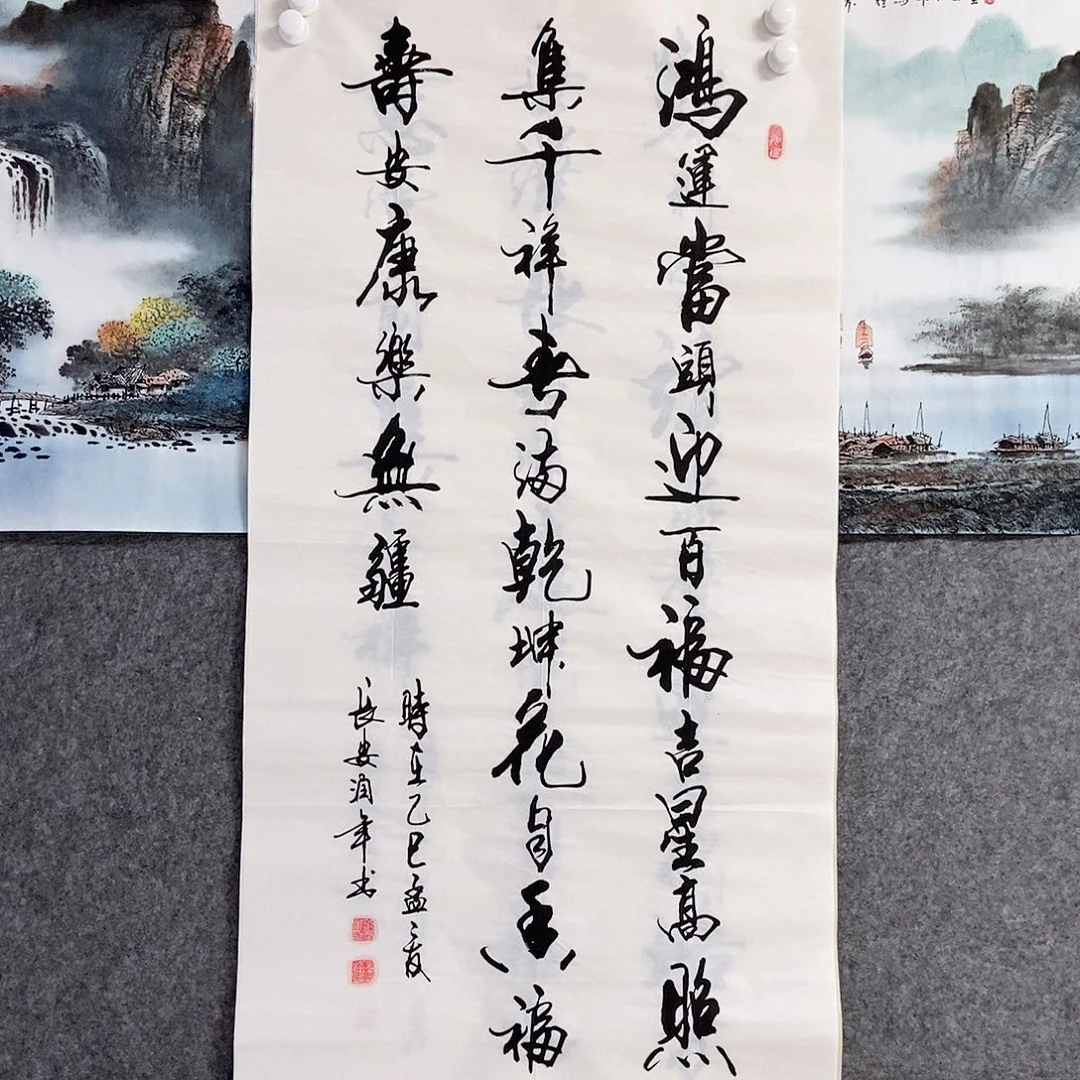 鴻運當頭迎百福吉星高照
集千祥春滿乾坤花自香福
壽安康樂無疆
時在乙巳孟夏
長安潤年书